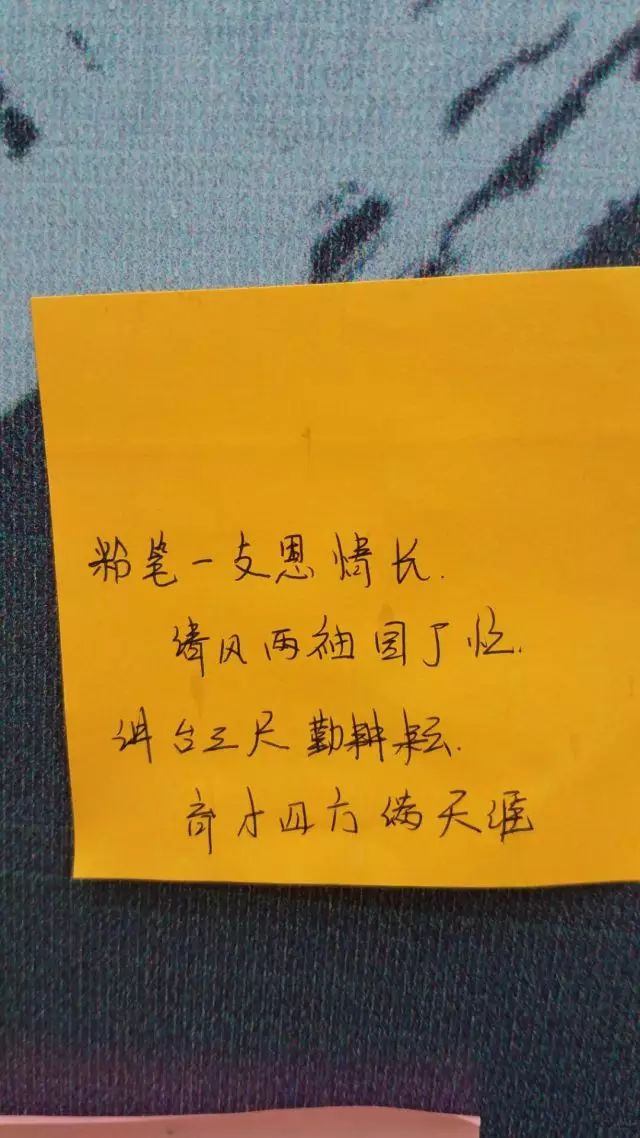 粉笔一支恩情长.
清风两袖园丁忙.
讲台三尺勤耕耘.
育才四方满天涯